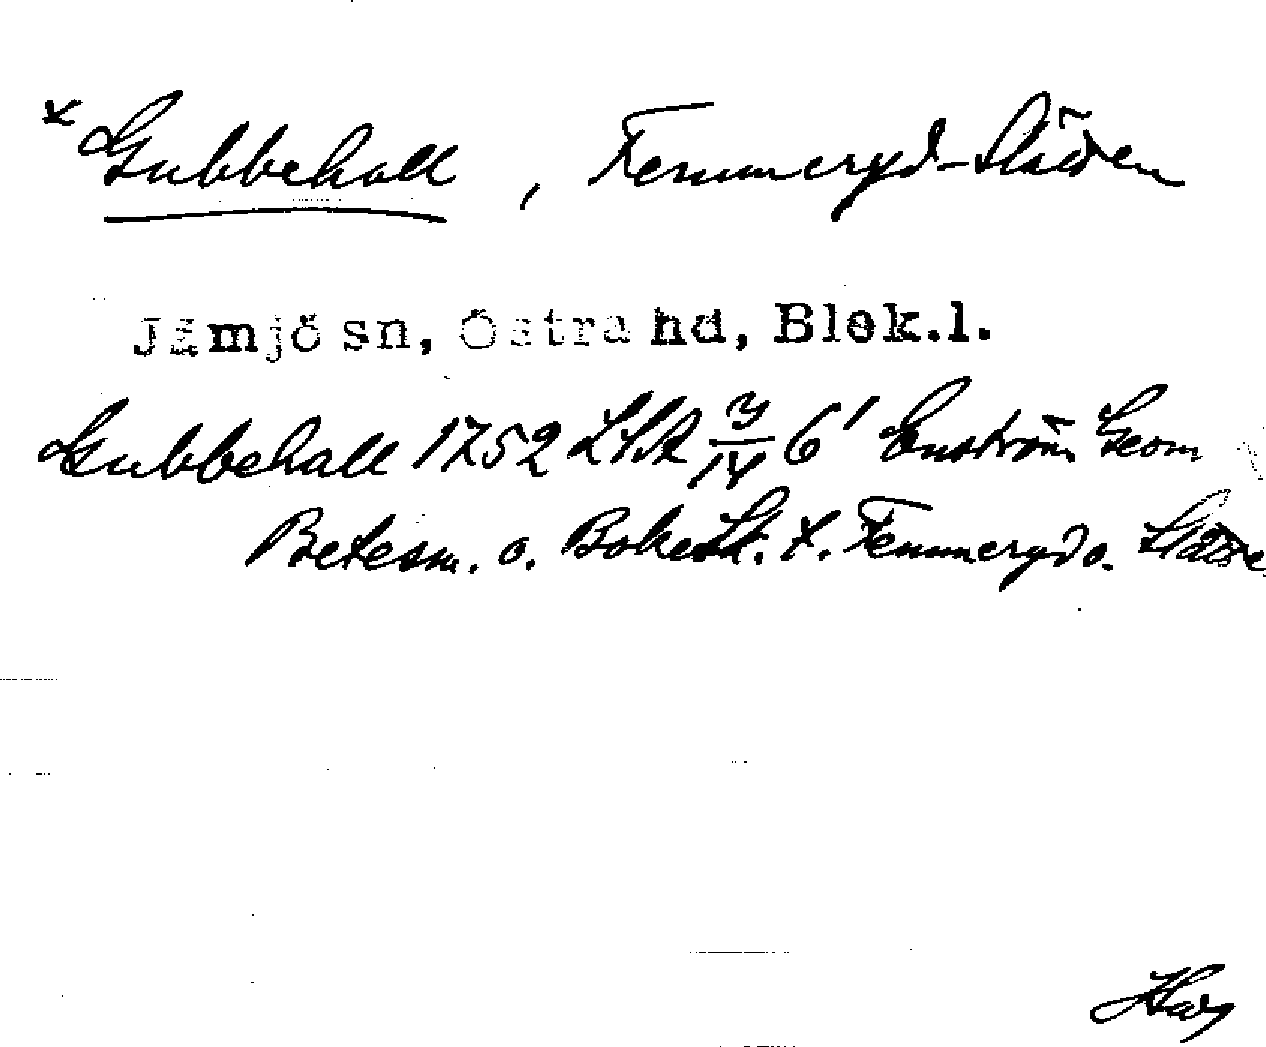 × Gubbehall, Femmeryd-Släden
Jämjö sn, Östra hd, Blek.l.
Gubbehall 1752 LSA 6' Enström Geom
Betesm. o. Bokesk. t. Femmeryd o.